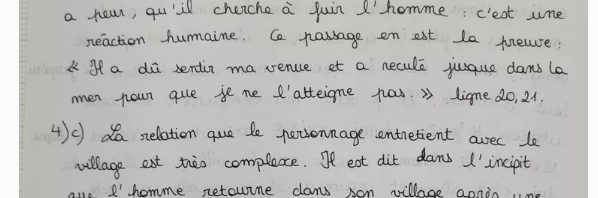 a peur, qu'il cherche à fuir l'homme : c'est une
réaction humaine. Ce passage en est la preuve :
« Il a dû sentir ma venue et a reculé jusque dans la
mer pour que je ne l'atteigne pas. » ligne 20, 21.
4)c) La relation que le personnage entretient avec le
village est très complexe. Il est dit dans l'incipit
que l'homme retourne dans son village après une